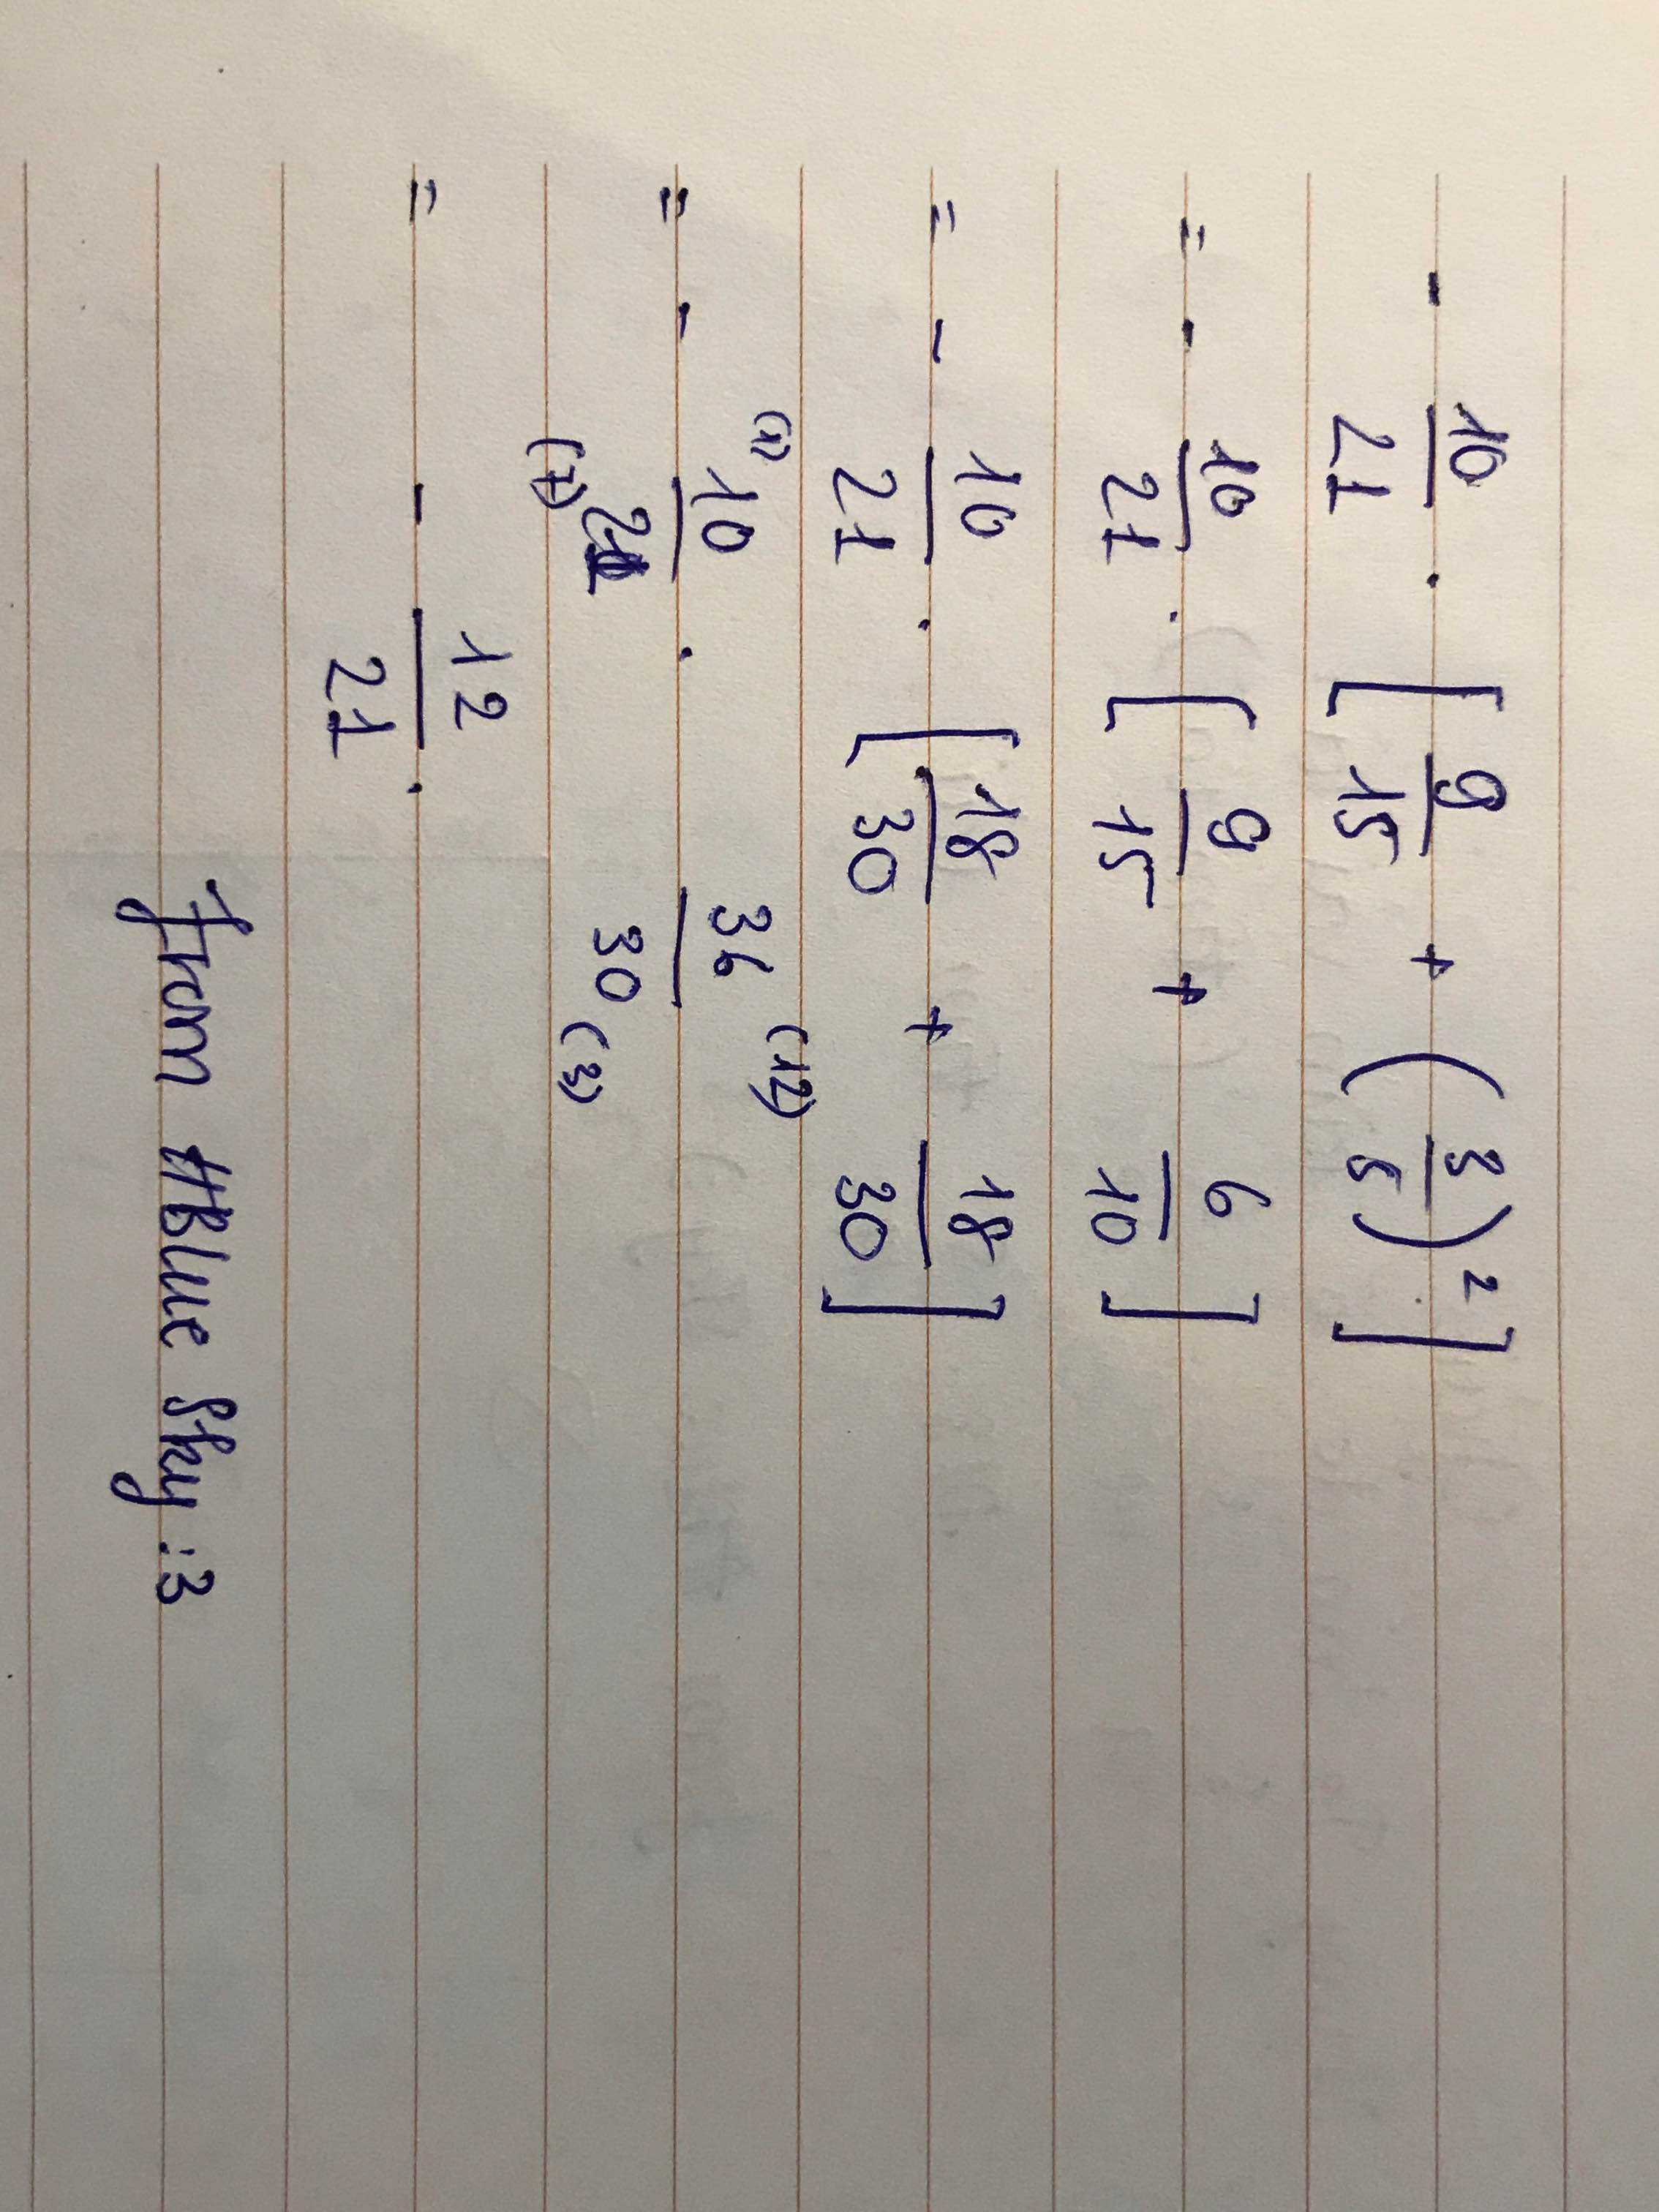 - 10/21 . [ 9/15 + (3/5)² ]
= - 10/21 . [ 9/15 + 6/10 ]
= - 10/21 . [ 18/30 + 18/30 ]
= - (1) 10/21 (7) . 36/30 (12) (3)
= - 12/21 .
from #Blue Sky :3